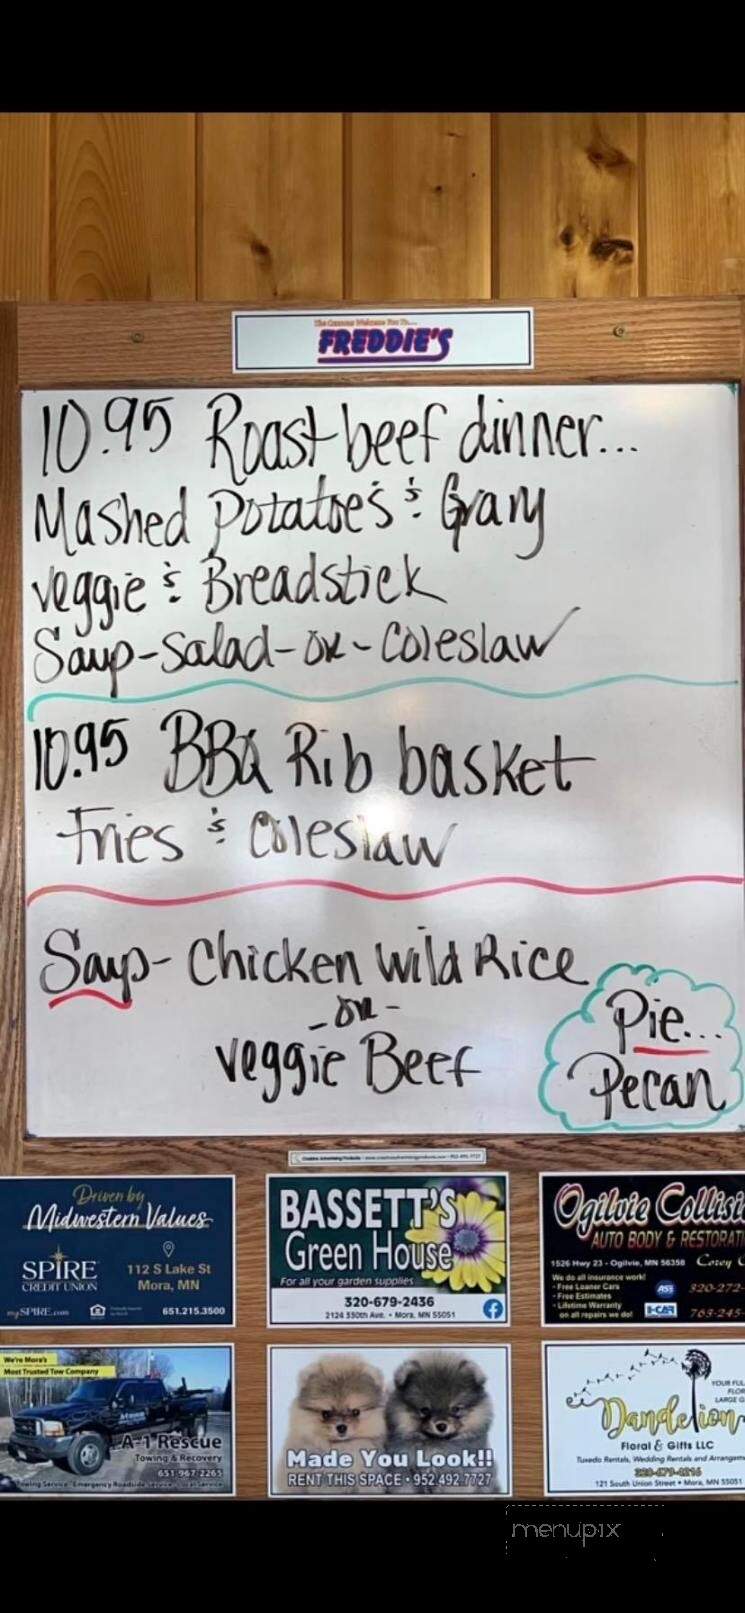 FREDDIE'S
10.95 Roast beef dinner...
Mashed Potatoe's & Gravy
Veggie & Breadstick
Soup-Salad-or-Coleslaw
10.95 BBQ Rib basket
Fries & Coleslaw
Soup- Chicken Wild Rice
-or-
Veggie Beef
Pie...
Pecan
Driven by
Midwestern Values
SPIRE
CREDIT UNION
112 S Lake St
Mora, MN
mySPIRE.com
651.215.3500
BASSETT'S
Green House
For all your garden supplies
320-679-2436
2124 330th Ave. • Mora, MN 55051
Ogilvie
AUTO BODY &
1526 Hwy 23 - Ogilvie, MN 56358
Corey
We do all insurance work!
- Free Loaner Cars
- Free Estimates
- Lifetime Warranty
on all repairs we do!
ASE
I-CAR
320-272-
763-245-
We're Mora's
Most Trusted Tow Company
A-1 Rescue
Towing & Recovery
651-967-2265
Made You Look!!
RENT THIS SPACE • 952.492.7727
YOUR FUL
FLOR
LARGE G
Dandelion
Floral & Gifts LLC
Tuxedo Rentals, Wedding Rentals and
121 South Union Street • Mora, MN 55051
menupix